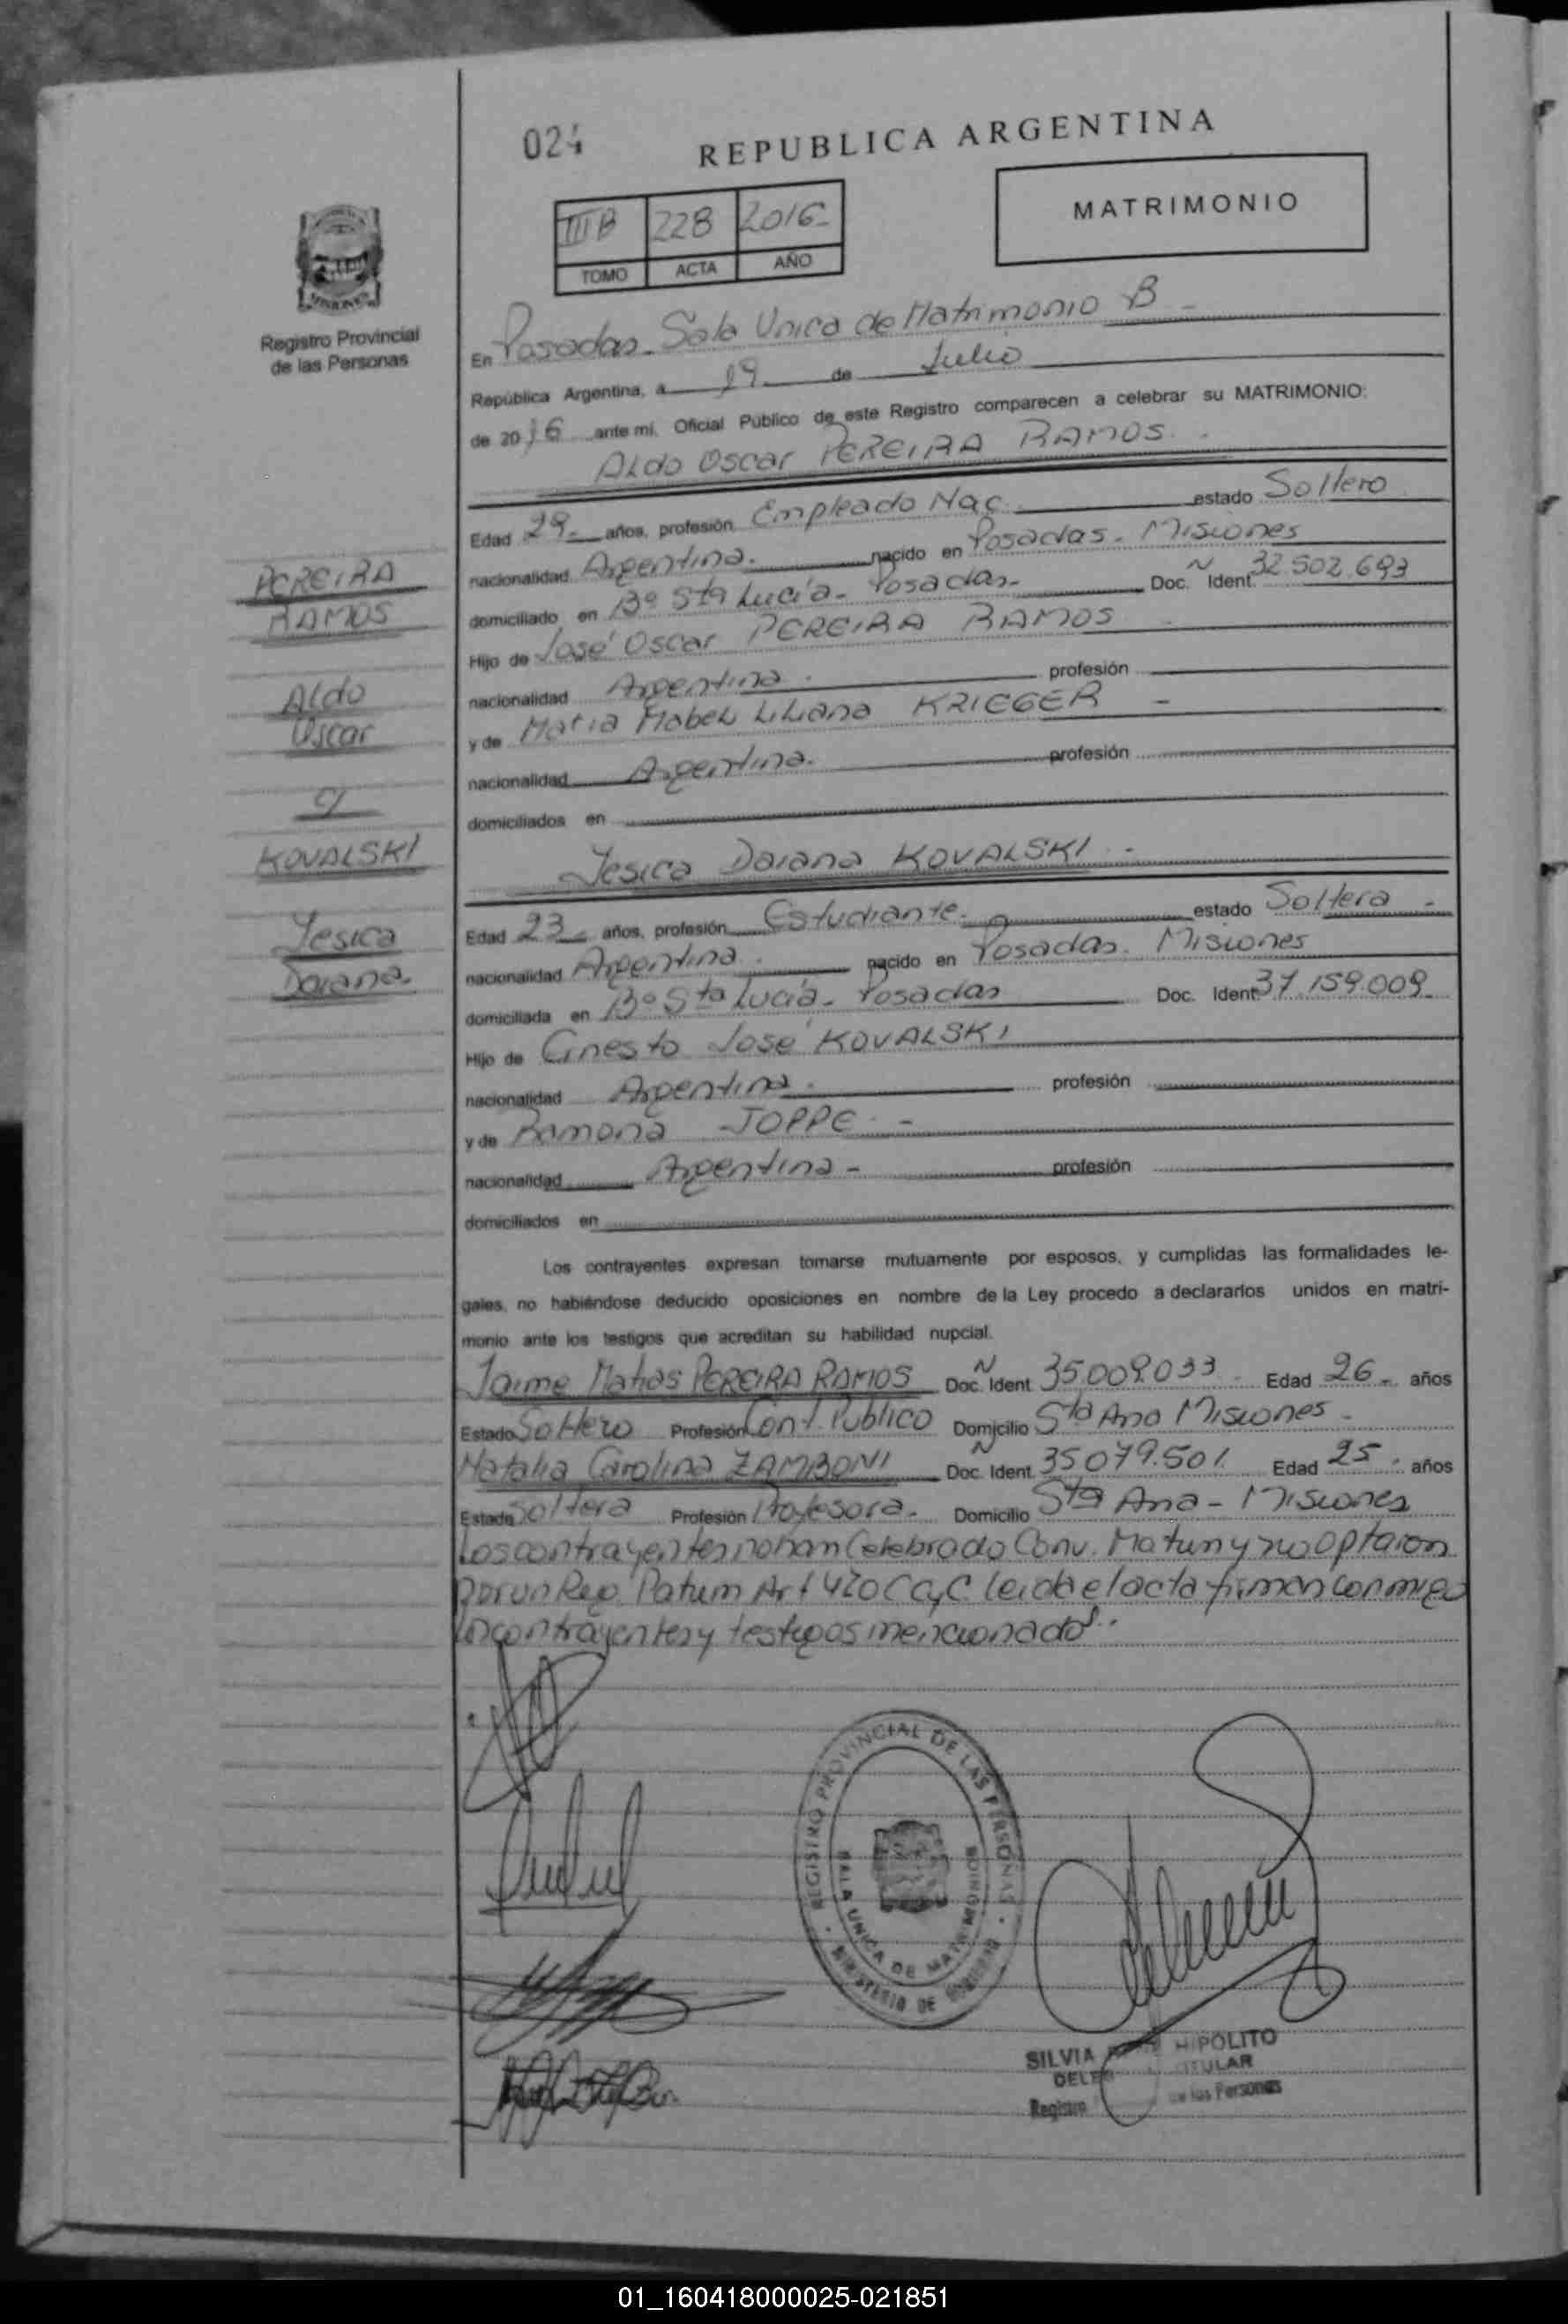 024
REPUBLICA ARGENTINA
MATRIMONIO
IIIB 228 2016
TOMO ACTA AÑO
MISIONES
Registro Provincial
de las Personas
En Posadas. Sala Unica de Matrimonio B
República Argentina, a 19 de Julio
de 2016 ante mi, Oficial Público de este Registro comparecen a celebrar su MATRIMONIO:
Aldo Oscar PEREIRA RAMOS.
Edad 29 años, profesión Empleado Nac. estado Soltero
nacionalidad Argentina. nacido en Posadas. Misiones
domiciliado en Bº Sta Lucía - Posadas - Doc. Ident. 32.502.693
Hijo de José Oscar PEREIRA RAMOS
nacionalidad Argentina. profesión
y de María Mabel Liliana KRIEGER -
nacionalidad Argentina. profesión
domiciliados en
PEREIRA
RAMOS
Aldo
Oscar
c/
KOVALSKI
Yesica
Daiana.
Yesica Daiana KOVALSKI. -
Edad 23 años, profesión Estudiante. estado Soltera -
nacionalidad Argentina. nacido en Posadas. Misiones
domiciliada en Bº Sta Lucía - Posadas Doc. Ident. 37.159.009
Hijo de Ernesto José KOVALSKI
nacionalidad Argentina. profesión
y de Ramona JOPPE. -
nacionalidad Argentina - profesión
domiciliados en
Los contrayentes expresan tomarse mutuamente por esposos, y cumplidas las formalidades le-
gales, no habiéndose deducido oposiciones en nombre de la Ley procedo a declararlos unidos en matri-
monio ante los testigos que acreditan su habilidad nupcial.
Jaime Matias PEREIRA RAMOS Doc. Ident. 35.009.033 Edad 26 años
Estado Soltero Profesión Cont. Publico Domicilio Sta Ana Misiones -
Natalia Carolina ZAMBONI Doc. Ident. 35079.501. Edad 25 años
Estado Soltera Profesión Profesora. Domicilio Sta Ana - Misiones
Los contrayentes no han Celebrado Conv. Matrim y no optaron
por un Reg. Patrim Art 420 C C y C. leida el acta firman conmigo
los contrayentes y testigos mencionados.
REGISTRO PROVINCIAL DE LAS PERSONAS
SALA UNICA DE MATRIMONIOS
MINISTERIO DE GOBIERNO
SILVIA HIPOLITO
TITULAR
Registro de las Personas
01_160418000025-021851